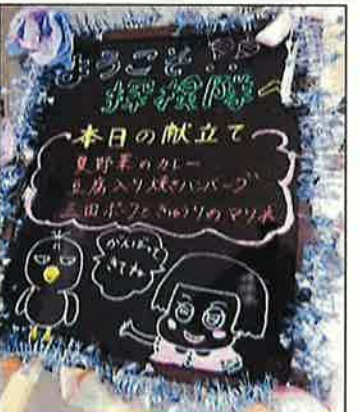 ようこそ!!
探検隊
本日の献立て
夏野菜のカレー
豆腐入り焼きハンバーグ
三田ポークときゅうりのマリネ
がんばって
きてね